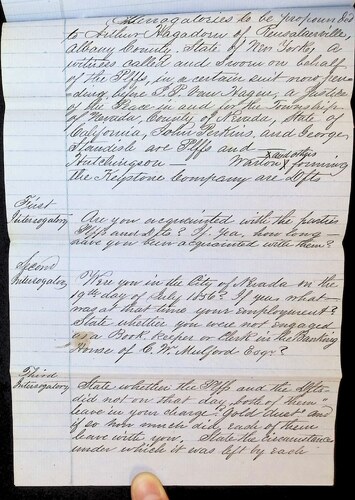 Interrogatories to be propounded
to Arthur Hagadorn of Rensselaerville,
Albany County, State of New York, A
witness called and sworn on behalf
of the Plffs, in a certain suit now pen-
ding before P. P. Van Hagen, a Justice
of the Peace in and for the Township
of Nevada, County of Nevada, State of
California, John Perkins, and George
Standish are Plffs and
Hutchingson — Warton x and others x forming
the Keystone Company are Dfts
First
Interrogatory
Are you acquainted with the parties
Plffs and Dfts? If Yea, how long
have you been acquainted with them?
Second
Interrogatory
Were you in the City of Nevada on the
19th day of July 1856? If yea what
was at that time your employment?
State whether you were not engaged
as a Book Keeper or Clerk in the Banking
House of C. W. Mulford Esqr?
Third
Interrogatory
State whether the Plffs and the Dfts
did not on that day, both of them
leave in your charge "Gold dust" and
if so how much did each of them
leave with you. State the circumstances
under which it was left by each